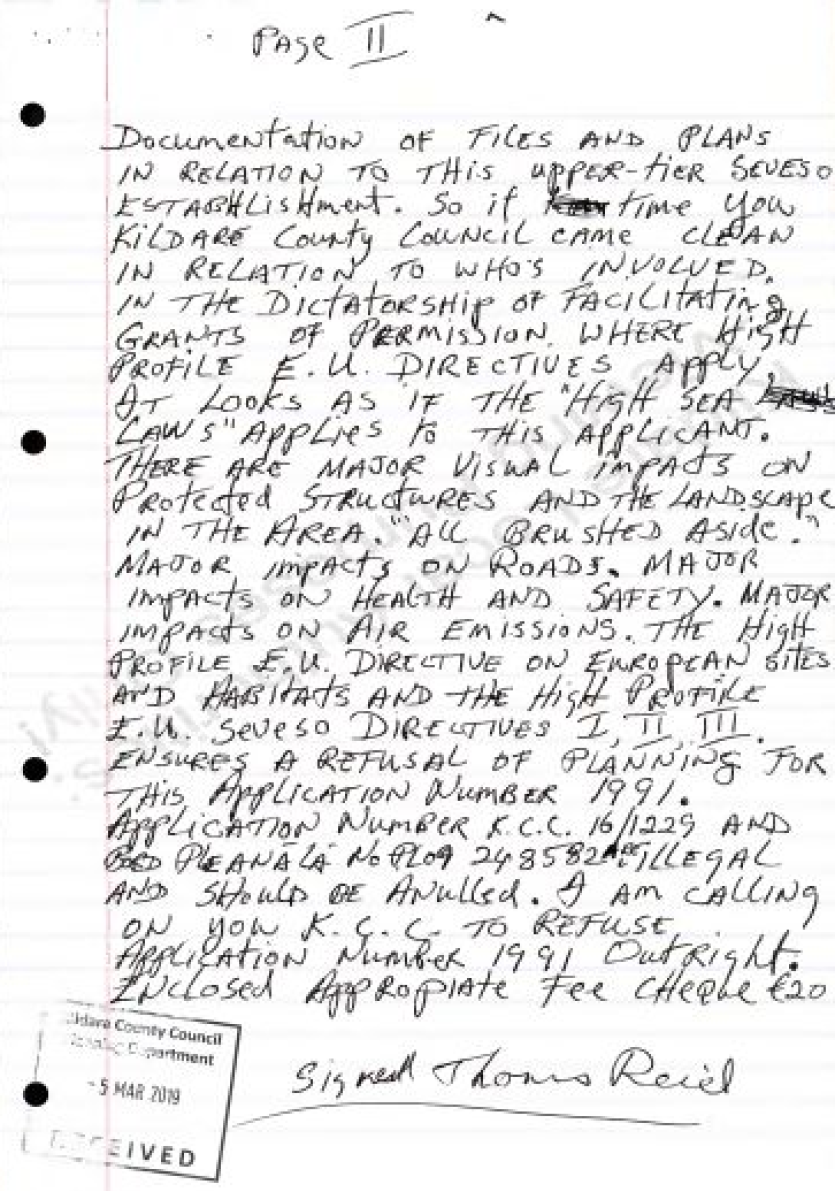 Page II
Documentation of Files and Plans
in relation to this upper-tier Seveso
Establishment. So if time you
Kildare County Council came clean
in relation to who's involved.
in the Dictatorship of Facilitating
Grants of Permission. Where High
Profile E.U. Directives Apply,
It looks as if the "High Sea
Laws" Applies to this Applicant.
There are major visual impacts on
Protected Structures and the Landscape
in the area. "All Brushed Aside."
Major impacts on Roads. Major
impacts on Health and Safety. Major
impacts on Air Emissions. The High
Profile E.U. Directive on European sites
and Habitats and the High Profile
E.U. Seveso Directives I, II, III.
Ensures a refusal of planning for
this Application Number 1991.
Application Number K.C.C. 16/1229 and
Bord Pleanála No PL09 248582 are illegal
and should be Anulled. I am calling
on you K.C.C. to refuse
Application Number 1991 Outright.
Enclosed Appropiate Fee Cheque €20
Signed Thomas Reid
Kildare County Council
Planning Department
-5 MAR 2019
RECEIVED